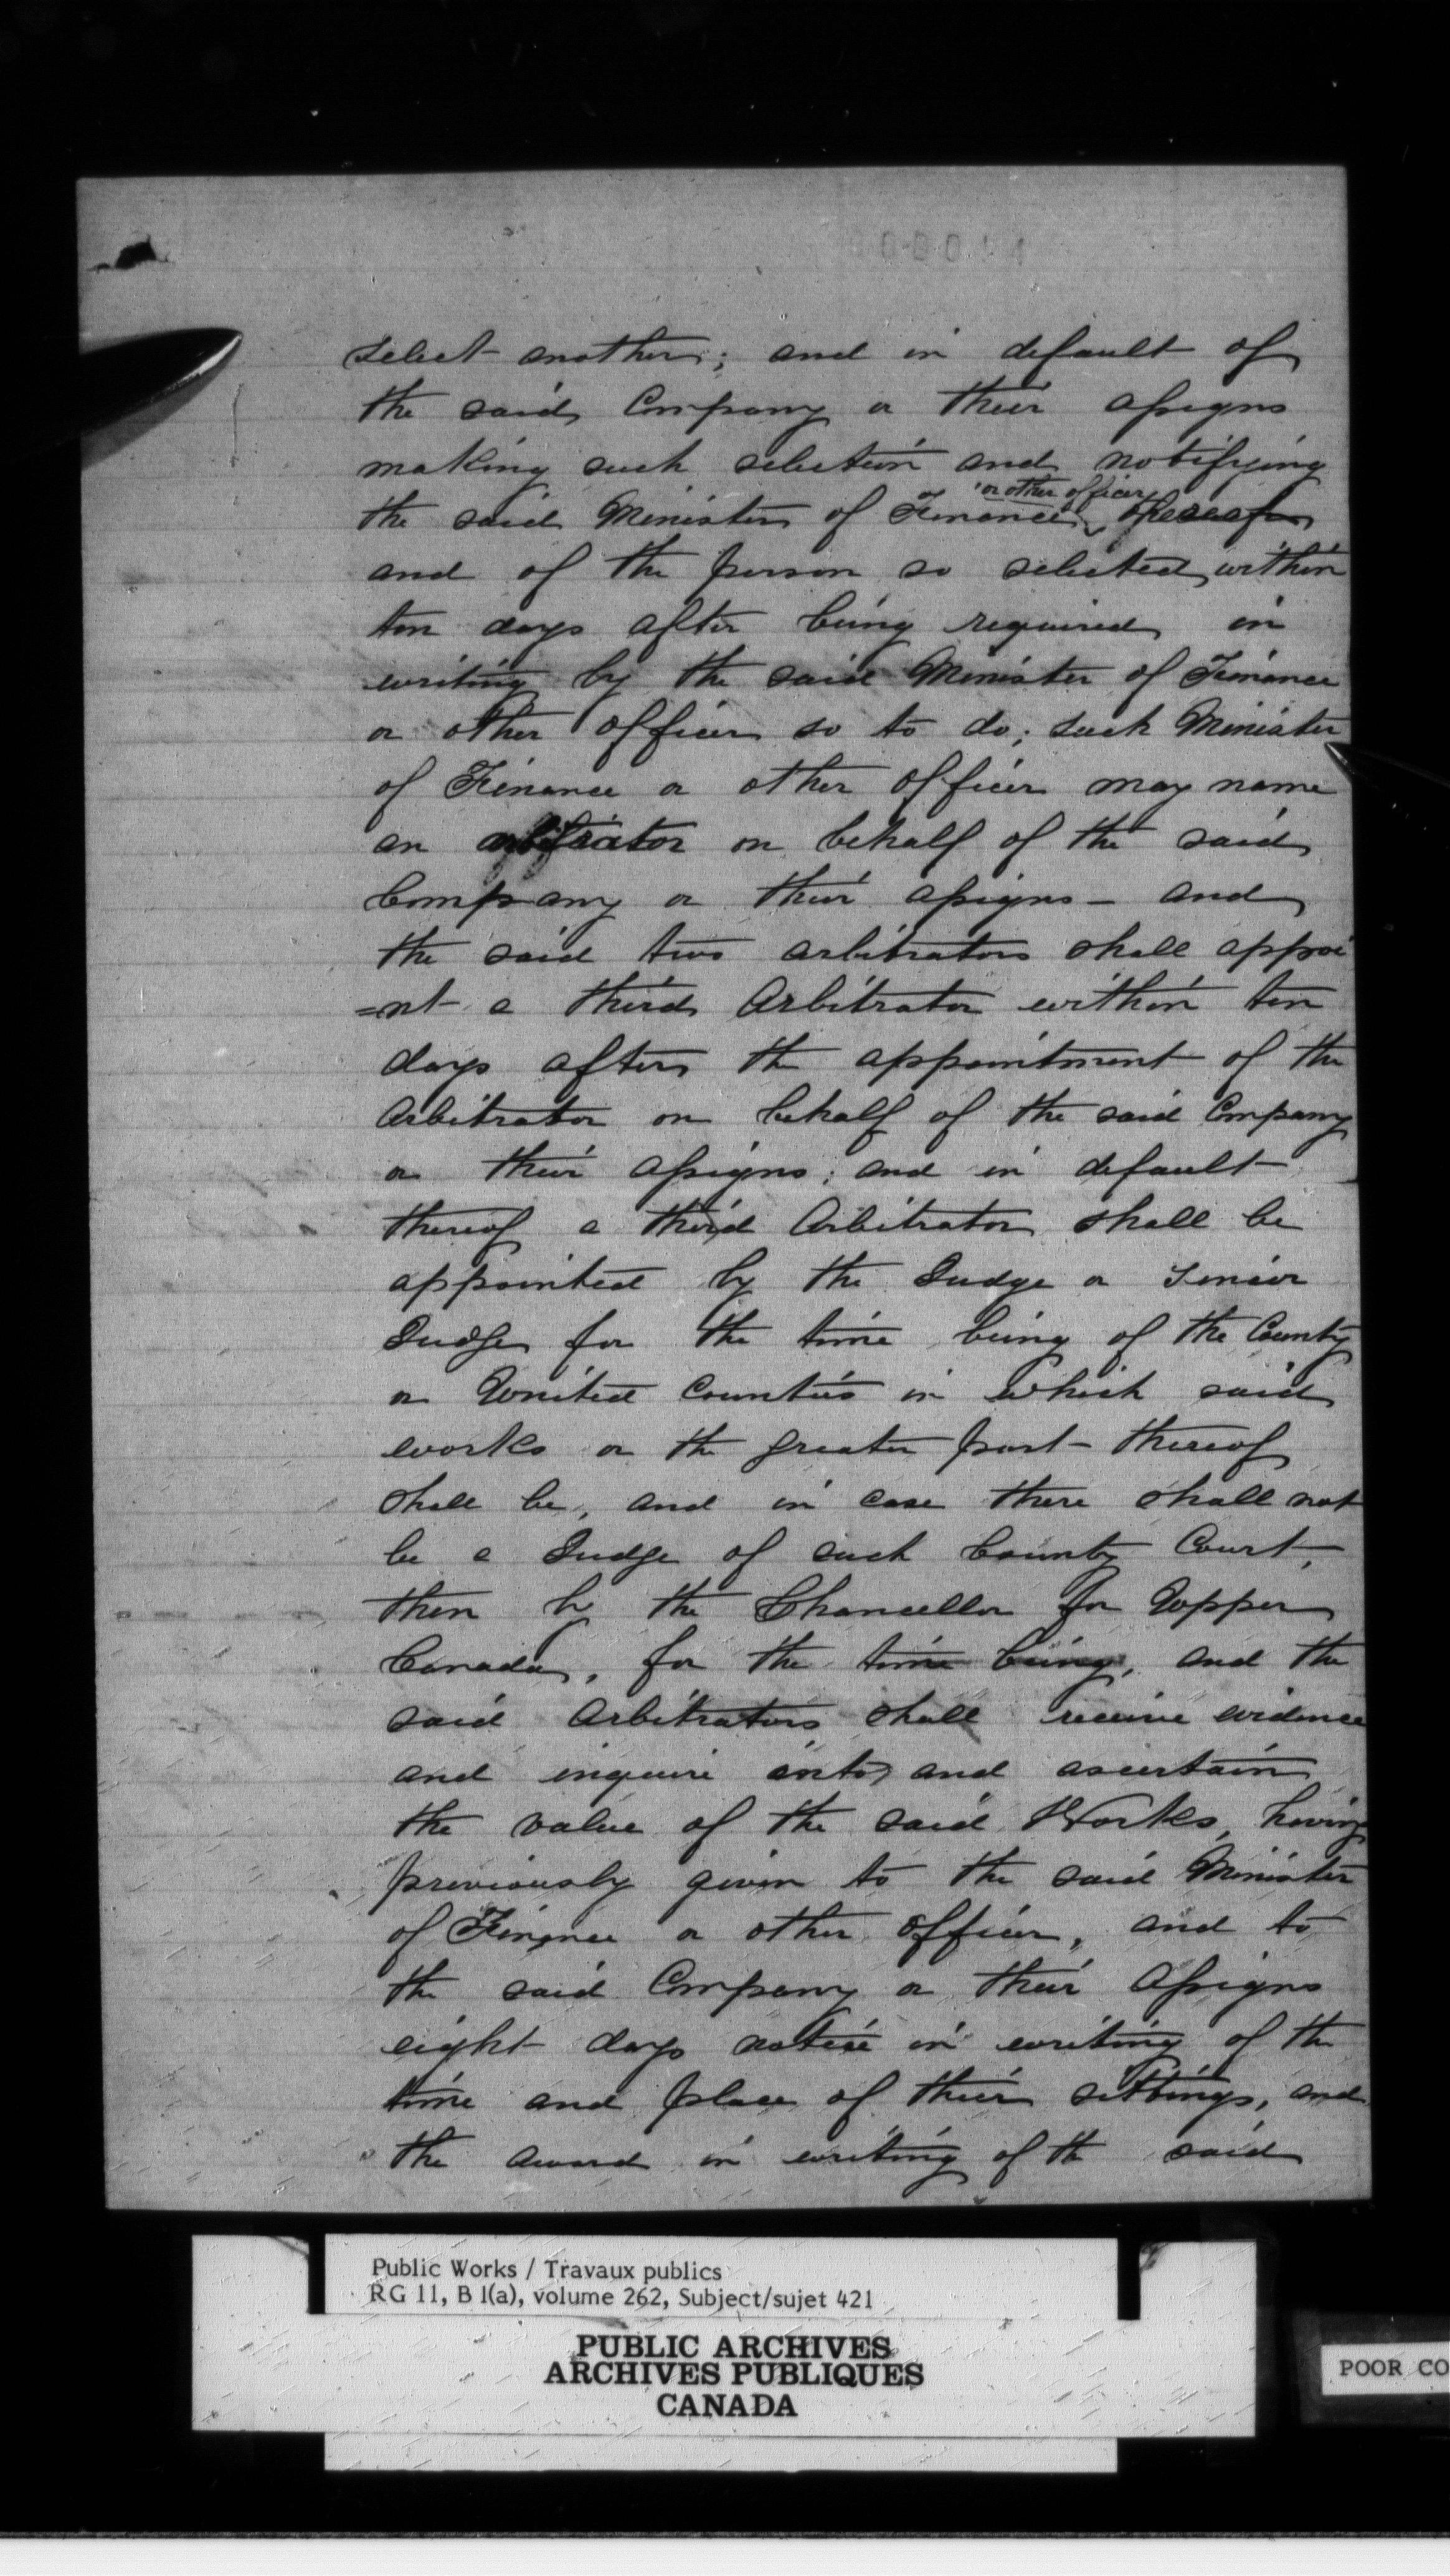 select another; and in default of
the said Company or their assigns
making such selection and notifying
or other officer
the said Minister of Finance thereof
and of the person so selected, within
ten days after being required in
writing by the said Minister of Finance
or other officer so to do; such Minister
of Finance or other officer may name
an arbitrator on behalf of the said
Company or their assigns - and
the said two arbitrators shall appoi
=nt a third Arbitrator within ten
days after the appointment of the
Arbitrator on behalf of the said Company
or their assigns; and in default
thereof a third Arbitrator shall be
appointed by the Judge or Senior
Judge for the time being of the County
or United Counties in which said
works or the greater part thereof
shall be, and in case there shall not
be a Judge of such County Court,
then by the Chancellor for Upper
Canada, for the time being, and the
said Arbitrators shall receive evidence
and inquire into and ascertain
the value of the said Works, having
previously given to the said Minister
of Finance or other officer, and to
the said Company or their Assigns
eight days notice in writing of the
time and place of their sittings, and
the award in writing of the said
Public Works / Travaux publics
RG 11, B 1(a), volume 262, Subject/sujet 421
PUBLIC ARCHIVES
ARCHIVES PUBLIQUES
CANADA
POOR CO